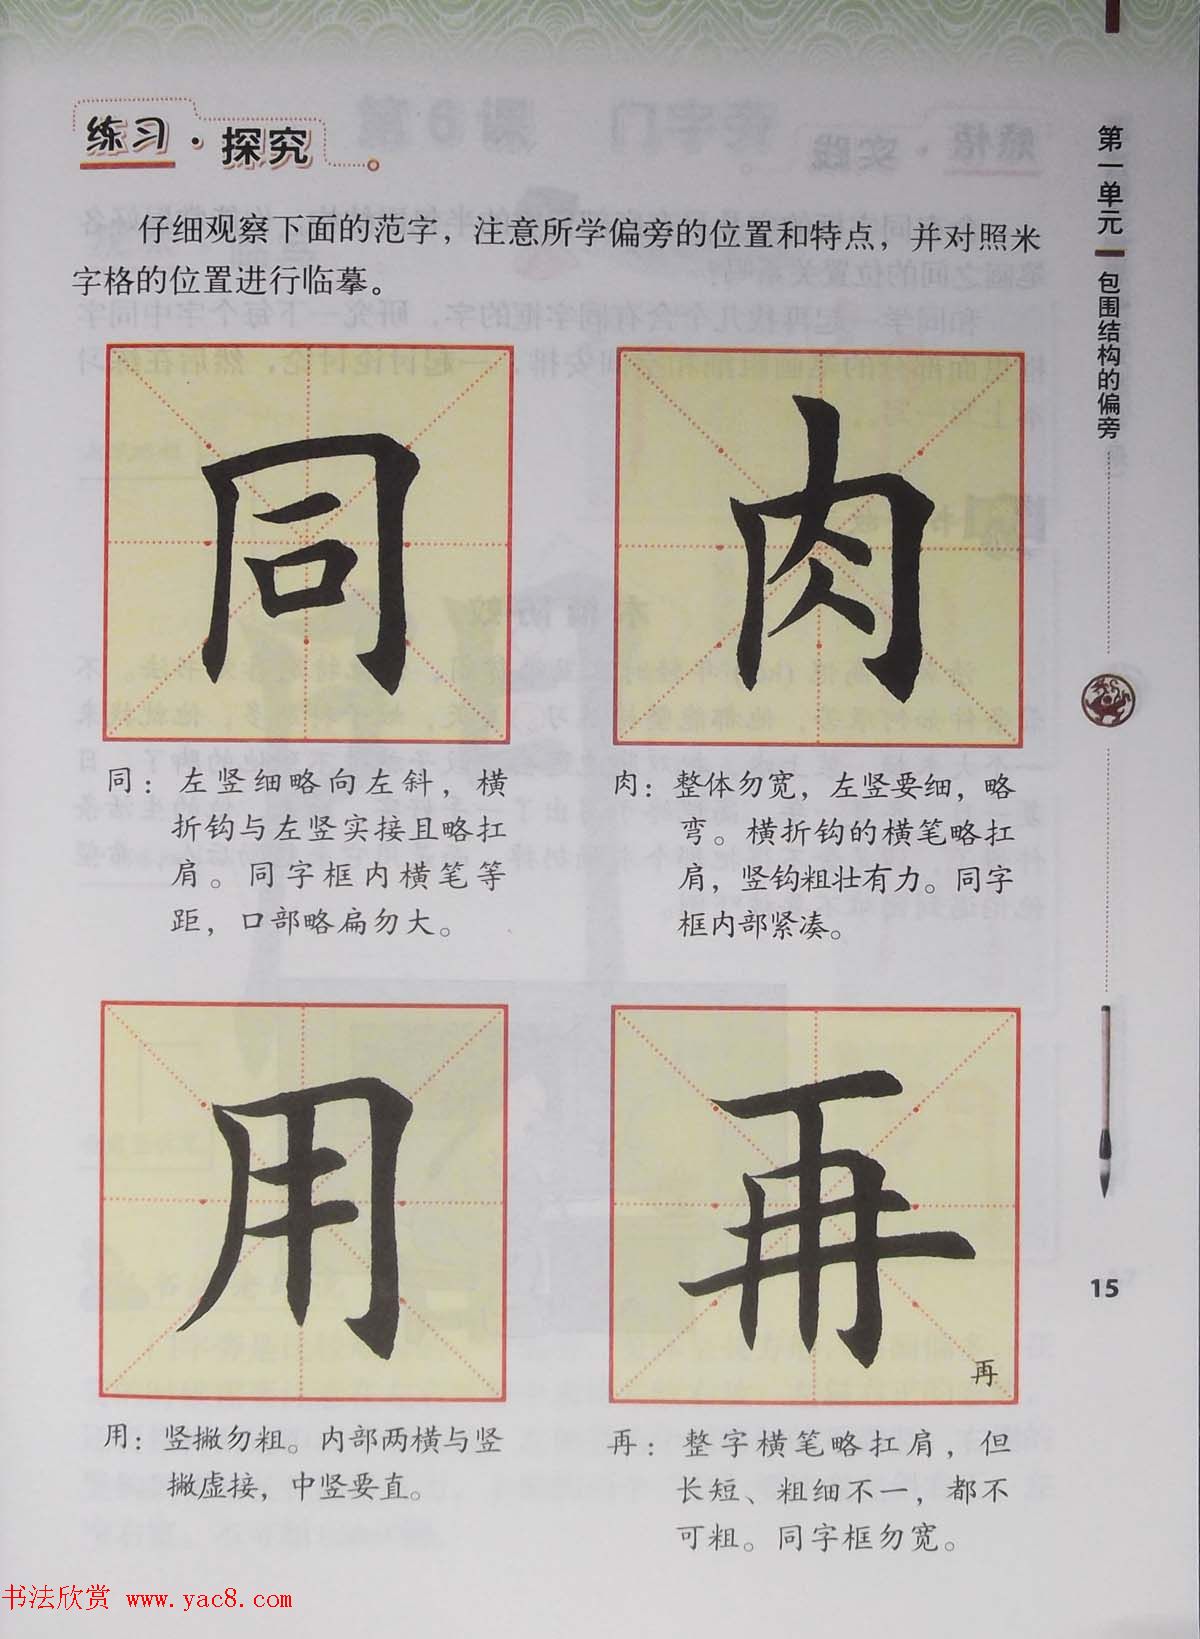 练习·探究
仔细观察下面的范字，注意所学偏旁的位置和特点，并对照米
字格的位置进行临摹。
同
肉
同：左竖细略向左斜，横
折钩与左竖实接且略扛
肩。同字框内横笔等
距，口部略扁勿大。
肉：整体勿宽，左竖要细，略
弯。横折钩的横笔略扛
肩，竖钩粗壮有力。同字
框内部紧凑。
用
再
再
用：竖撇勿粗。内部两横与竖
撇虚接，中竖要直。
再：整字横笔略扛肩，但
长短、粗细不一，都不
可粗。同字框勿宽。
第一单元
包围结构的偏旁
15
书法欣赏 www.yac8.com